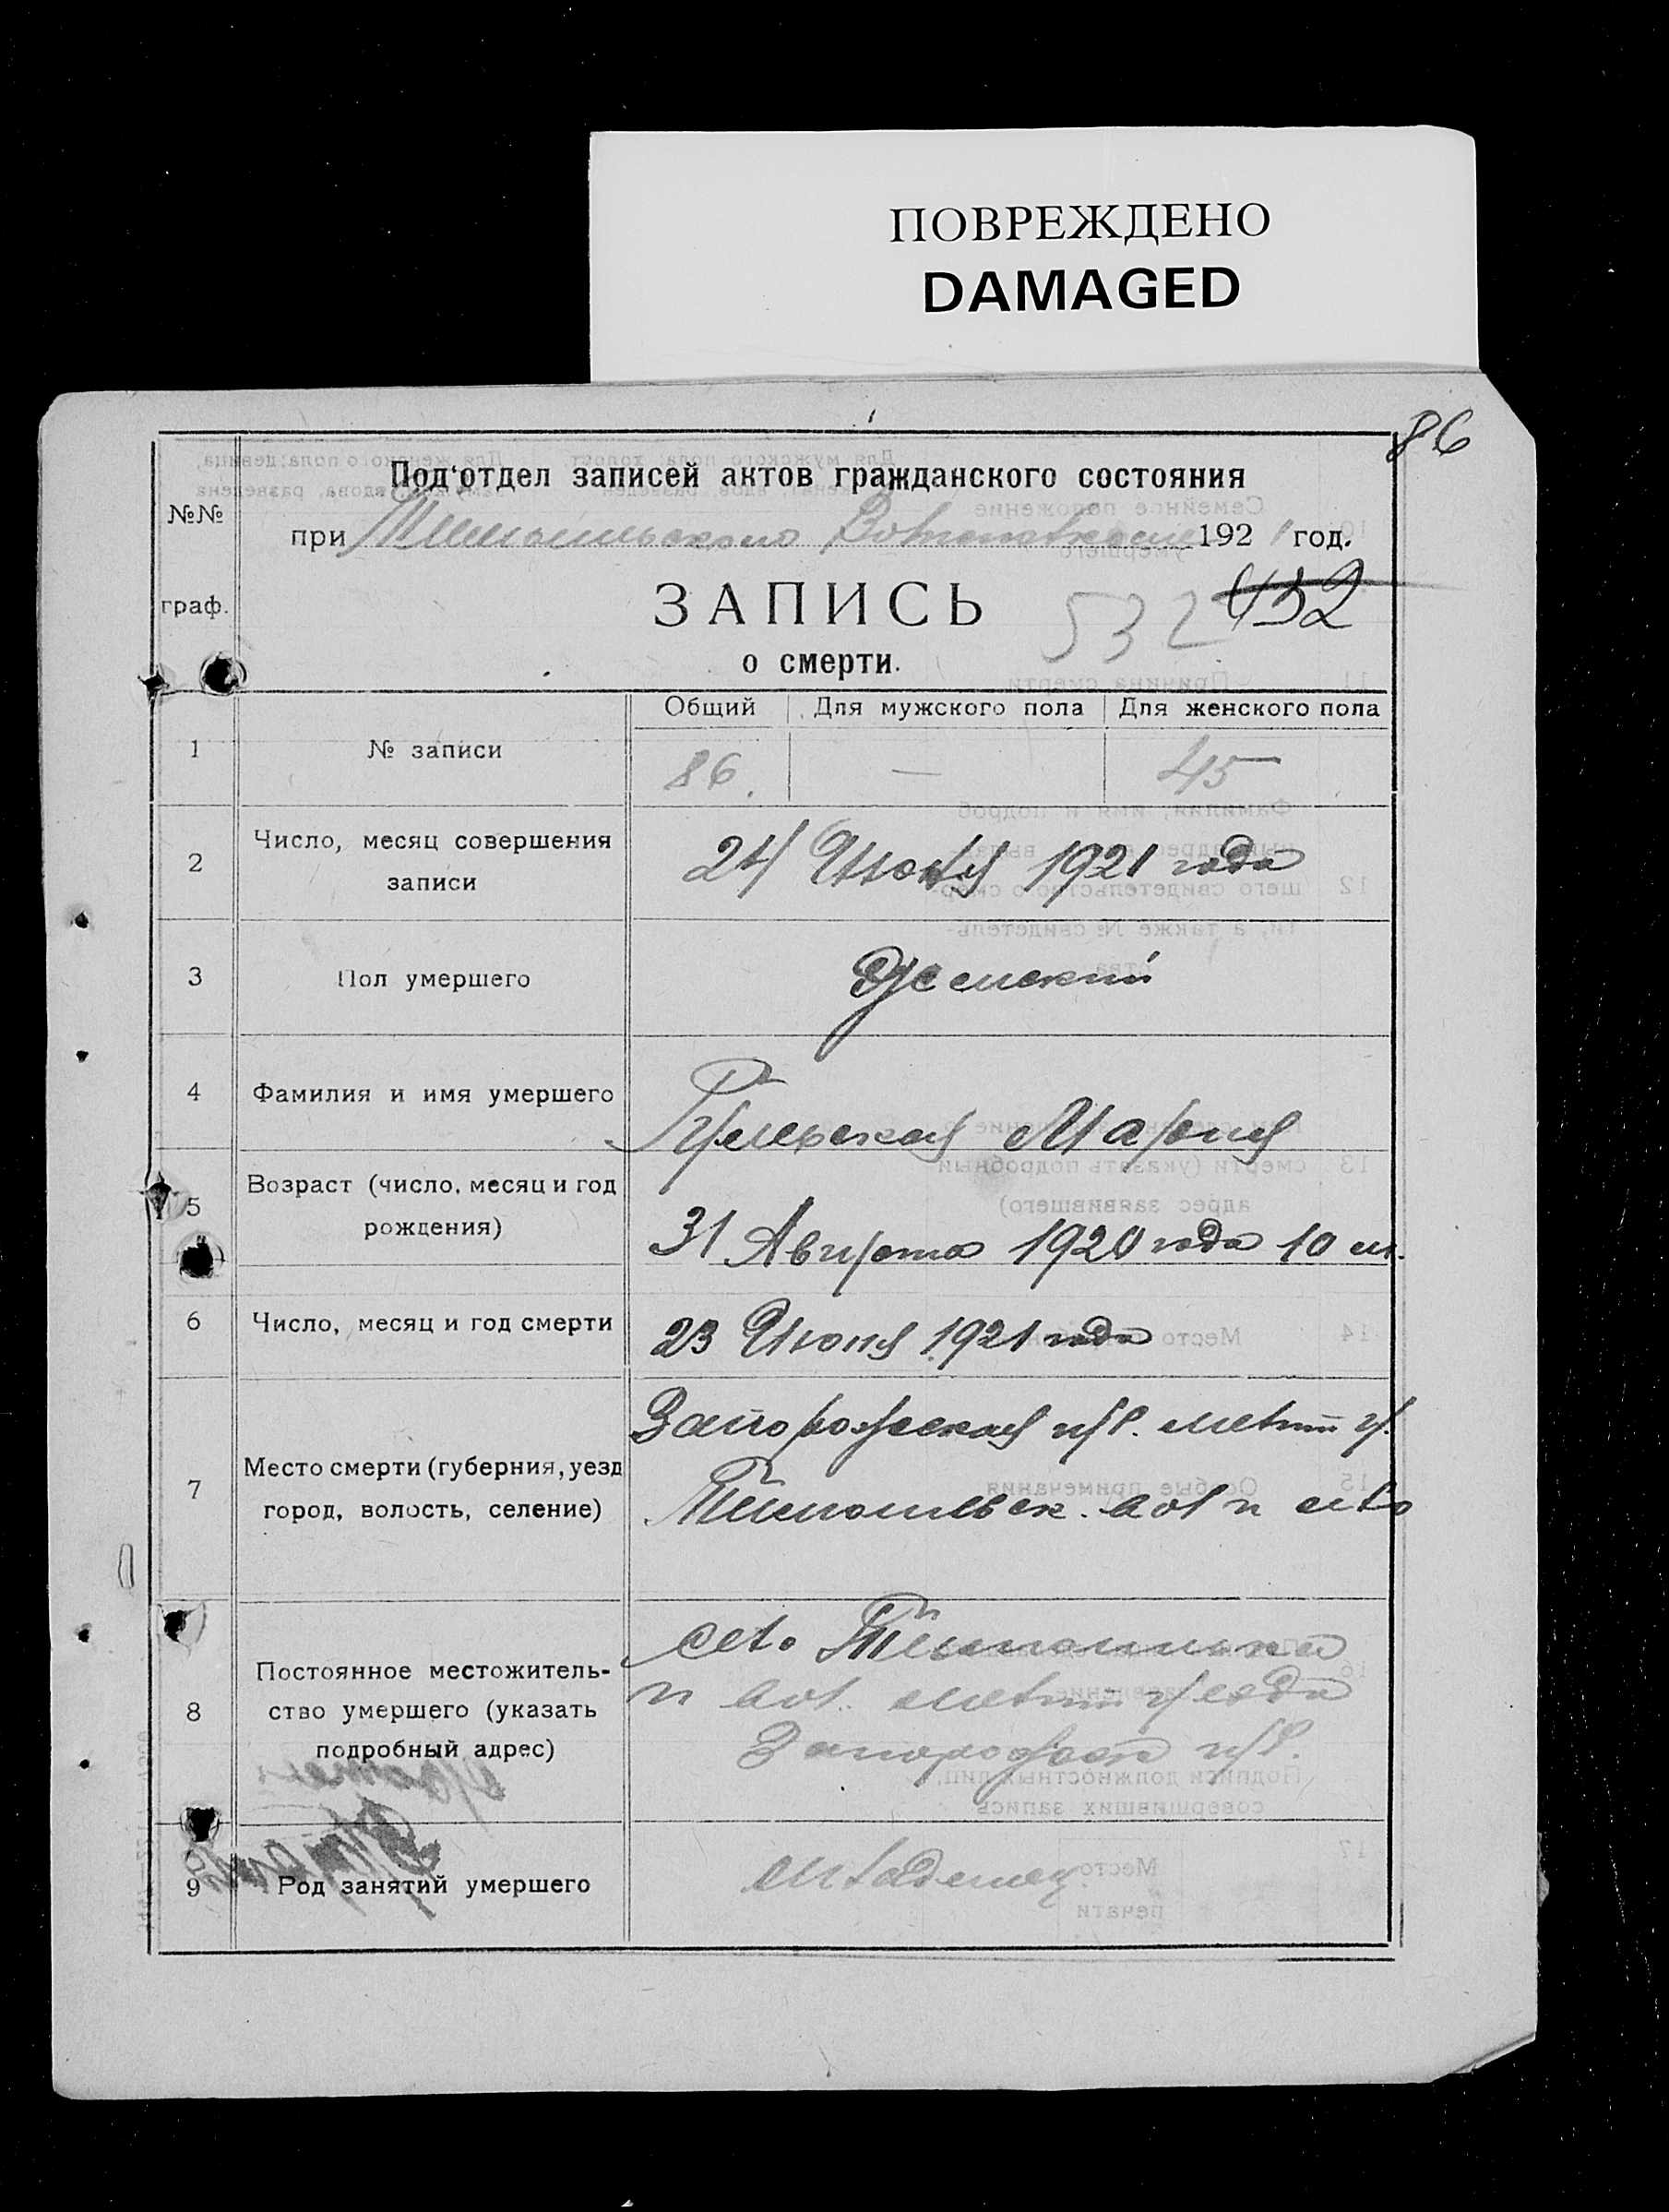 ПОВРЕЖДЕНО
DAMAGED
86
Под'отдел записей актов гражданского состояния
№№ граф.
при 1921 год.
ЗАПИСЬ 532 432
о смерти.
Общий Для мужского пола Для женского пола
1 № записи 86. — 45
2 Число, месяц совершения
записи
24 Июня 1921 года
3 Пол умершего Женский
4 Фамилия и имя умершего Мария
5 Возраст (число, месяц и год
рождения)
31 Августа 1920 года 10 м.
6 Число, месяц и год смерти 23 Июня 1921 года
7 Место смерти (губерния, уезд
город, волость, селение)
Запорожская губ. Мелит у.
вол и село
8 Постоянное местожитель-
ство умершего (указать
подробный адрес)
село
и вол. Мелит уезда
Запорожск губ.
9 Род занятий умершего младенец